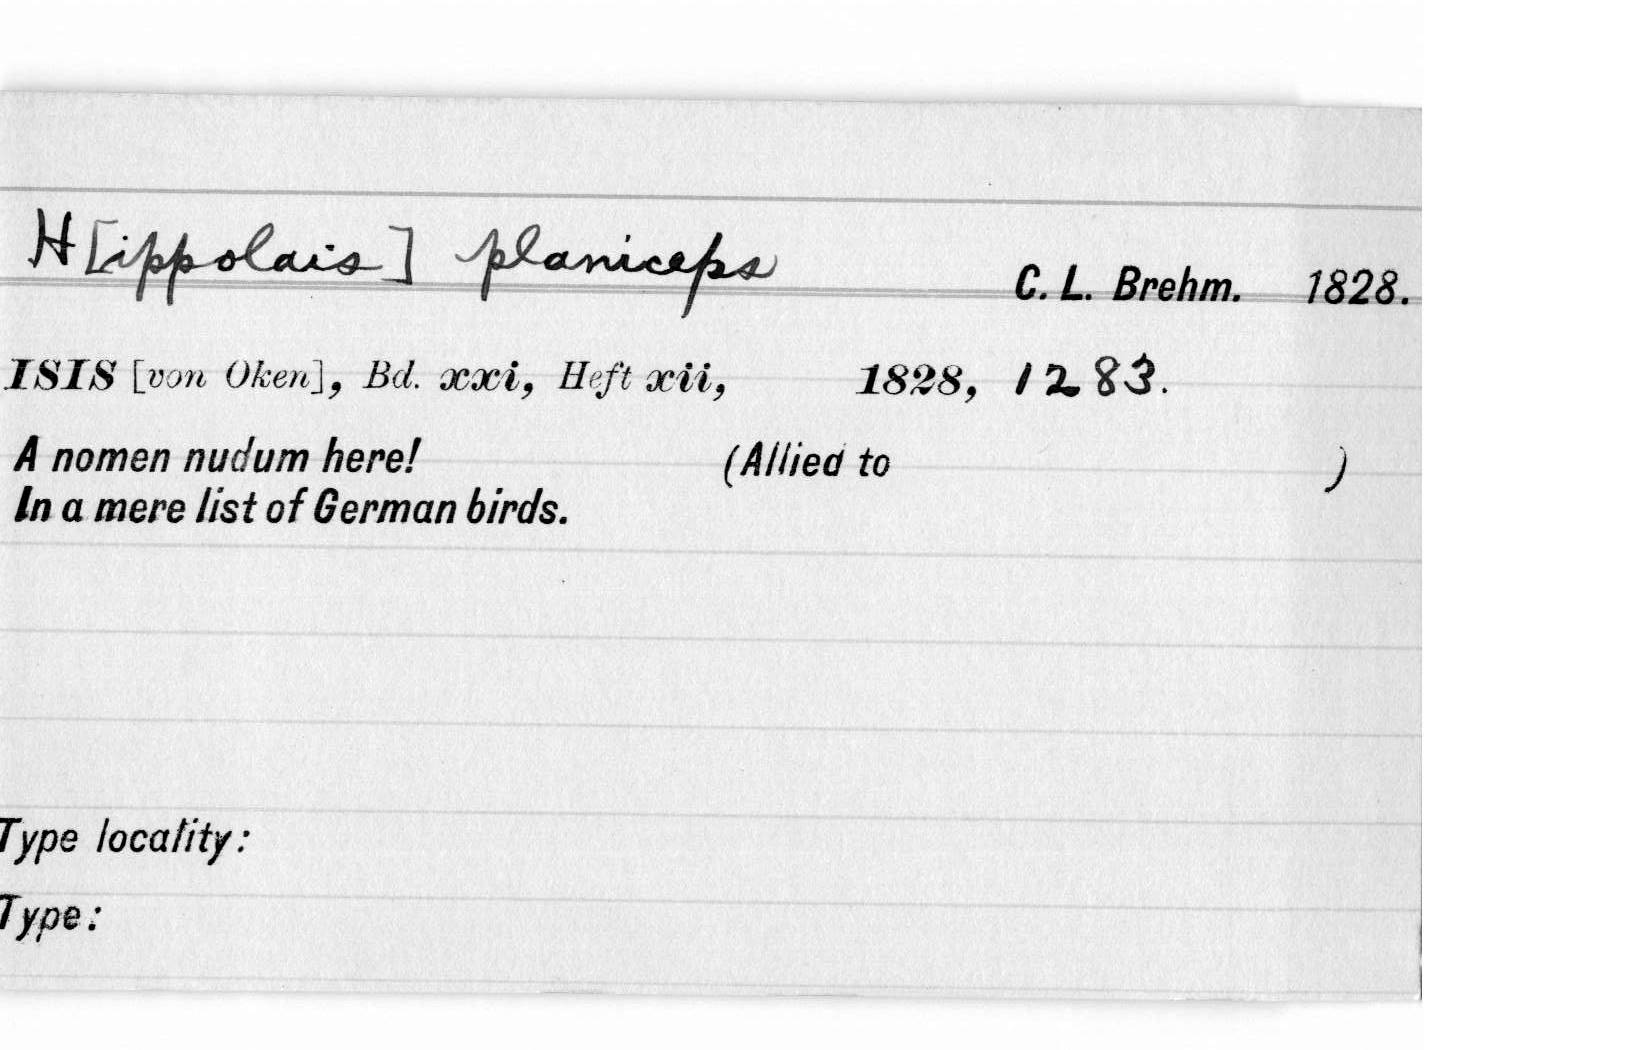 H[ippolais] planiceps C. L. Brehm. 1828.
ISIS [von Oken], Bd. xxi, Heft xii, 1828, 1283.
A nomen nudum here! (Allied to )
In a mere list of German birds.
Type locality:
Type: